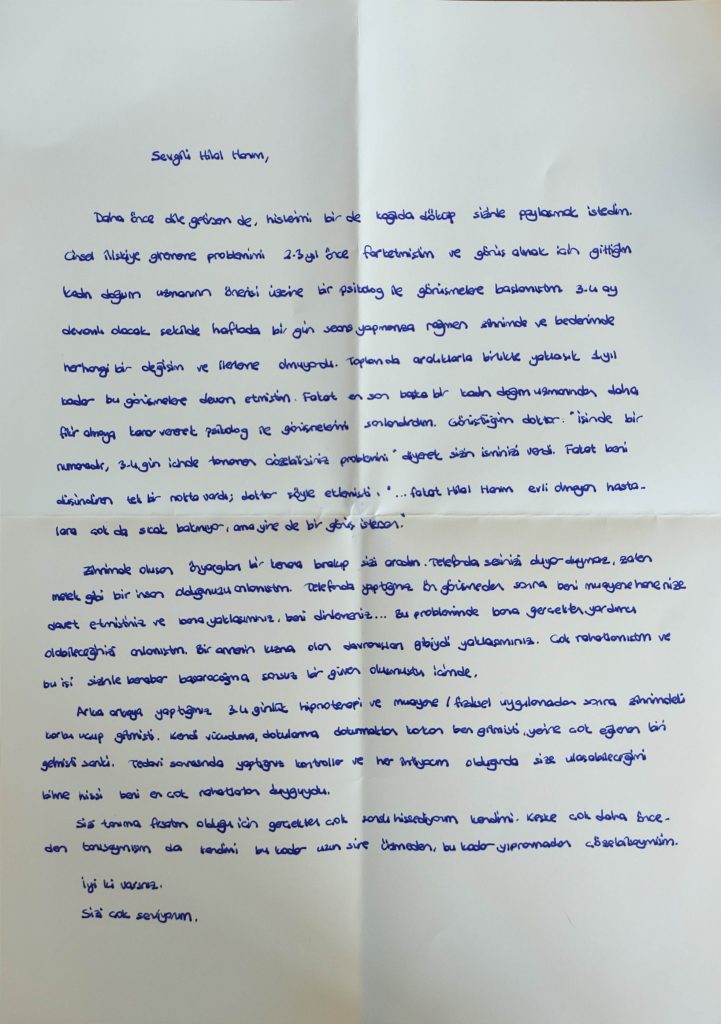 Sevgili Hilal Hanım,
Daha önce dile getirsem de, hislerimi bir de kağıda döküp sizinle paylaşmak istedim.
Cinsel ilişkiye girememe problemimi 2-3 yıl önce farketmiştim ve görüş almak için gittiğim
kadın doğum uzmanının önerisi üzerine bir psikolog ile görüşmelere başlamıştım. 3-4 ay
devamlı olacak şekilde haftada bir gün seans yapmamıza rağmen zihnimde ve bedenimde
herhangi bir değişim ve ilerleme olmuyordu. Toplamda aralıklarla birlikte yaklaşık 1 yıl
kadar bu görüşmelere devam etmiştim. Fakat en son başka bir kadın doğum uzmanından daha
fikir almaya karar vererek psikolog ile görüşmelerimi sonlandırdım. Görüştüğüm doktor: "İşinde bir
numaradır, 3-4 gün içinde tamamen çözebilirsiniz problemini" diyerek sizin isminizi verdi. Fakat beni
düşündüren tek bir nokta vardı; doktor şöyle eklemişti, "... fakat Hilal Hanım evli olmayan hasta-
lara çok da sıcak bakmıyor, ama yine de bir görüş istersen."
Zihnimde oluşan önyargıları bir kenara bırakıp sizi aradım. Telefonda sesinizi duyar duymaz, zaten
melek gibi bir insan olduğunuzu anlamıştım. Telefonda yaptığımız ön görüşmeden sonra beni muayenehanenize
davet etmiştiniz ve bana yaklaşımınız, beni dinlemeniz... Bu problemimde bana gerçekten yardımcı
olabileceğinizi anlamıştım. Bir annenin kızına olan davranışları gibiydi yaklaşımınız. Çok rahatlamıştım ve
bu işi sizinle beraber başaracağıma sonsuz bir güven oluşmuştu içimde.
Arka arkaya yaptığımız 3-4 günlük hipnoterapi ve muayene / fiziksel uygulamadan sonra zihnimdeki
korku uçup gitmişti. Kendi vücuduma, dokularıma dokunmaktan korkan ben gitmişti, yerine çok eğlenen biri
gelmişti sanki. Tedavi sonrasında yaptığımız kontroller ve her ihtiyacım olduğunda size ulaşabileceğimi
bilme hissi beni en çok rahatlatan duyguydu.
Sizi tanıma fırsatım olduğu için gerçekten çok şanslı hissediyorum kendimi. Keşke çok daha önce-
den tanısaymışım da kendimi bu kadar uzun süre üzmeden, bu kadar yıpranmadan çözebilseymişim.
İyi ki varsınız.
Sizi çok seviyorum.